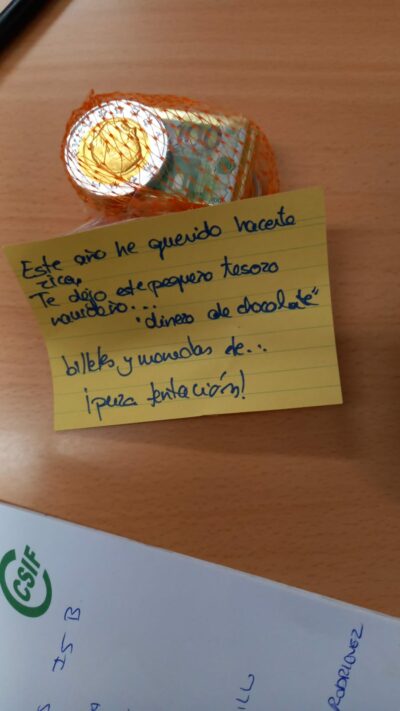 Este año he querido hacerte
rica,
Te dejo este pequeño tesoro
navideño...
"dinero de chocolate"
billetes y monedas de...
¡pura tentación!
CSIF
IS B
RODRIGUEZ